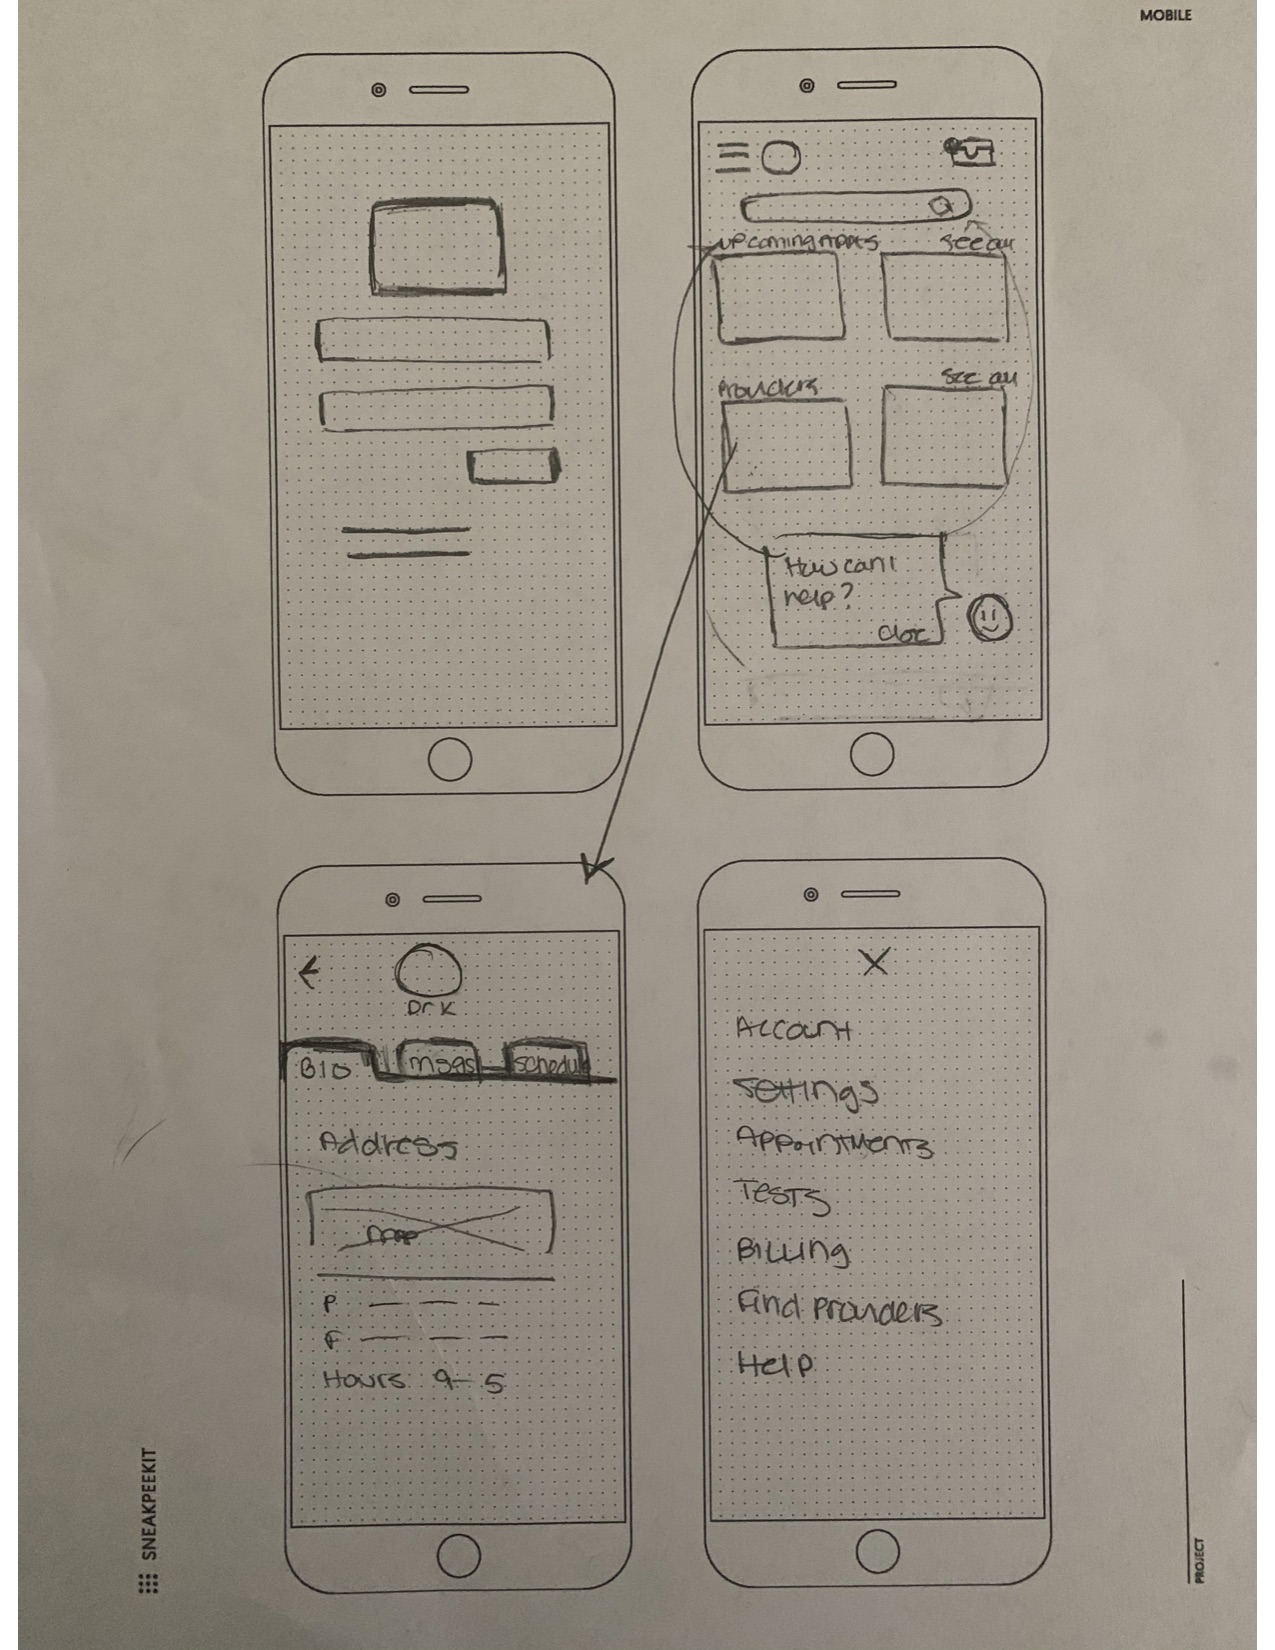 MOBILE
Upcoming Appts
See all
Providers
See all
How can I
help?
Dr K
BIO
msgs
schedul
Address
map
P.
F.
Hours 9-5
Account
Settings
Appointments
Tests
Billing
Find Providers
Help
SNEAKPEEKIT
PROJECT